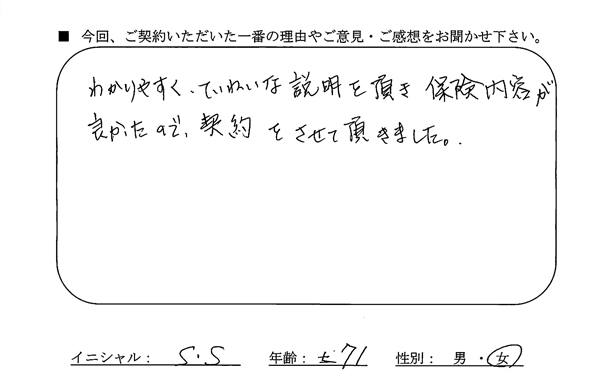 ■ 今回、ご契約いただいた一番の理由やご意見・ご感想をお聞かせ下さい。
わかりやすく、ていねいな説明を頂き 保険内容が
良かたので、契約をさせて頂きました。
イニシャル： S.S 年齢： 71 性別： 男 ・ 女